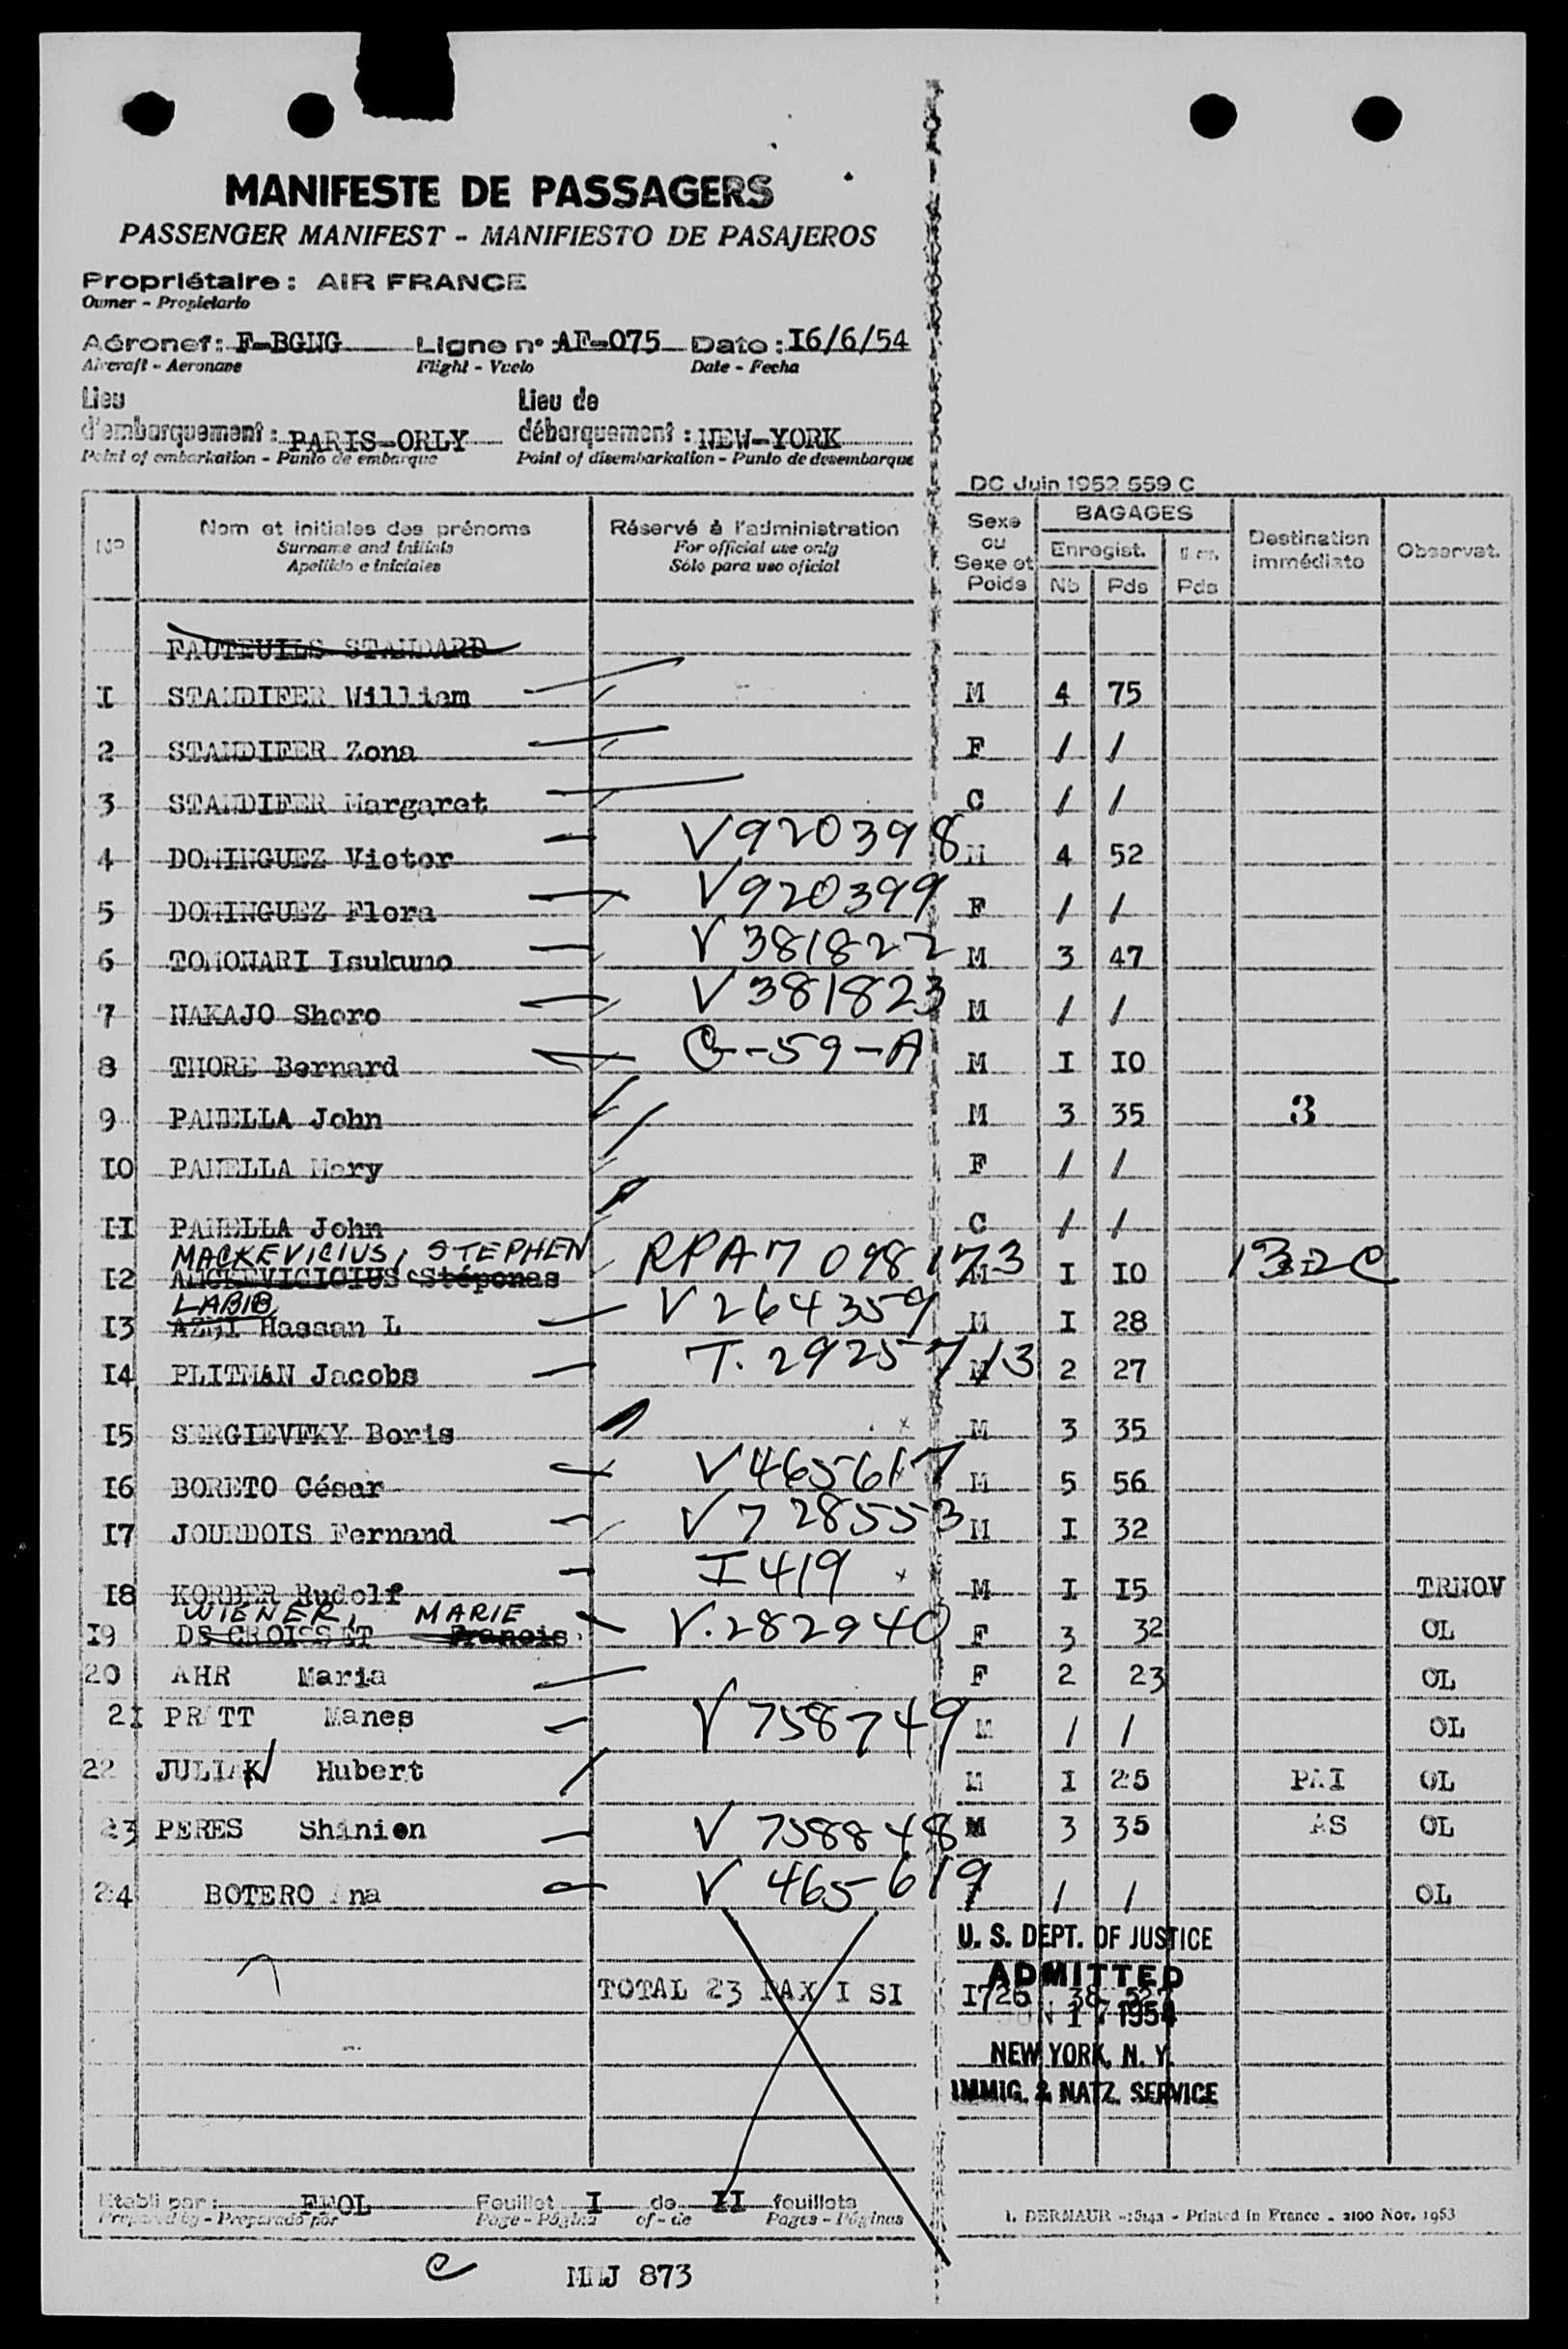 MANIFESTE DE PASSAGERS
PASSENGER MANIFEST - MANIFIESTO DE PASAJEROS
Propriétaire : AIR FRANCE
Owner - Propietario
Aéronef : F-BGNG Ligne n° : AF-075 Date : I6/6/54
Aircraft - Aeronave Flight - Vuelo Date - Fecha
Lieu Lieu de
d'embarquement : PARIS-ORLY débarquement : NEW-YORK
Point of embarkation - Punto de embarque Point of disembarkation - Punto de desembarque
DC Juin 1952 559 C
N° Nom et initiales des prénoms Réservé à l'administration Sexe BAGAGES Destination Observat.
Surname and initials For official use only ou Enregist. immédiate
Apellido e iniciales Sólo para uso oficial Sexe et Poids Nb Pds Pds
FAUTEUILS STANDARD
I STANDIFER William M 4 75
2 STANDIFER Zona F / /
3 STANDIFER Margaret C / /
4 DOMINGUEZ Victor V920398 M 4 52
5 DOMINGUEZ Flora V920399 F / /
6 TOMONARI Isukumo V 381822 M 3 47
7 NAKAJO Shoro V 381823 M / /
8 THORE Bernard C-59-A M I IO
9 PANELLA John M 3 35 3
IO PANELLA Mary F / /
II PANELLA John C / /
MACKEVICIUS, STEPHEN
I2 Stéponas RPA7 098173 M I IO
LABIB
I3 AZBI Hassan L V 264359 M I 28
I4 PLITMAN Jacobs T. 2925713 M 2 27
I5 SERGIEVFKY Boris M 3 35
I6 BORETO César V465617 M 5 56
I7 JOURDOIS Fernand V 728553 M I 32
I8 KORBER Rudolf I 419 M I I5 TRNOV
WIENER, MARIE
I9 DE CROISSET Francis V.282940 F 3 32 OL
20 AHR Maria F 2 23 OL
2I PRATT Manes V 758749 M / / OL
22 JULIAK Hubert M I 25 PAI OL
23 PERES Shinien V 758848 M 3 35 AS OL
24 BOTERO Ana V 465619 / / OL
U. S. DEPT. OF JUSTICE
ADMITTED
TOTAL 23 PAX I SI I726 38 527
JUN 17 1954
NEW YORK, N. Y.
IMMIG. & NATZ. SERVICE
Etabli par : FFOL Feuillet I de II feuillets
Prepared by - Preparado por Page - Página of - de Pages - Páginas
I. DERMAUR - Printed in France - 2100 Nov. 1953
C MMJ 873